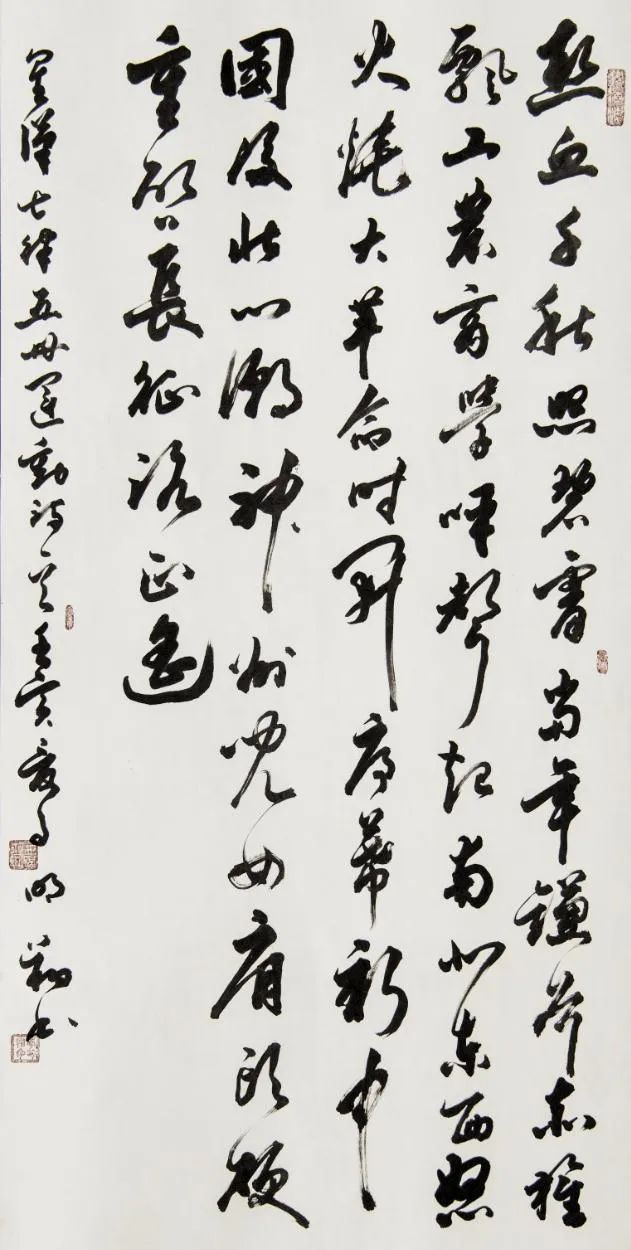 熱血千秋照碧霄當年鐮斧赤旗
飄工農商學呼聲起南北東西怒
火燒大革命時開序幕新中
國後壯心潮神州兒女肩頭硬
重啟長征路正遙
星漢七律五卅運動詩一首壬寅夏月明書